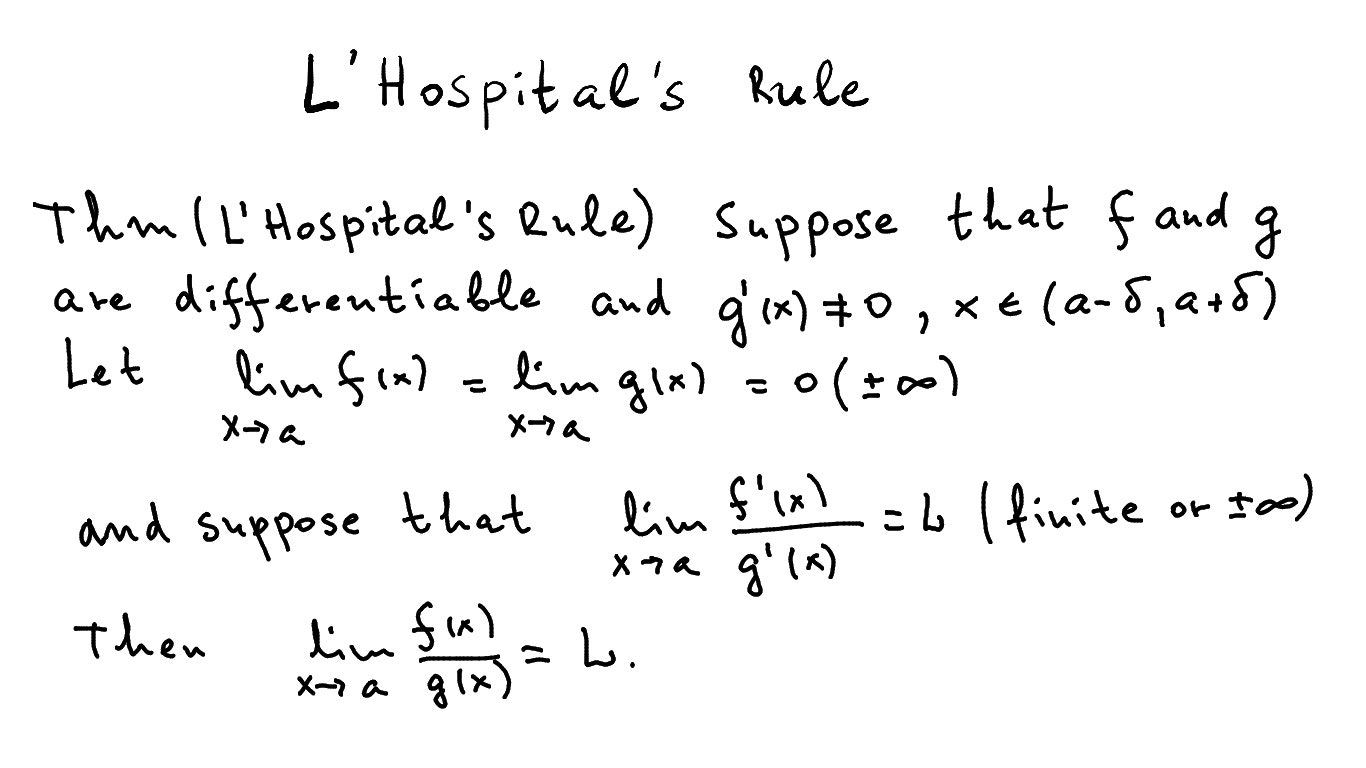 L'Hospital's Rule
Thm (L'Hospital's Rule) Suppose that f and g
are differentiable and g'(x) ≠ 0, x ∈ (a-δ, a+δ)
Let lim_{x→a} f(x) = lim_{x→a} g(x) = 0 (±∞)
and suppose that lim_{x→a} f'(x)/g'(x) = L (finite or ±∞)
Then lim_{x→a} f(x)/g(x) = L.